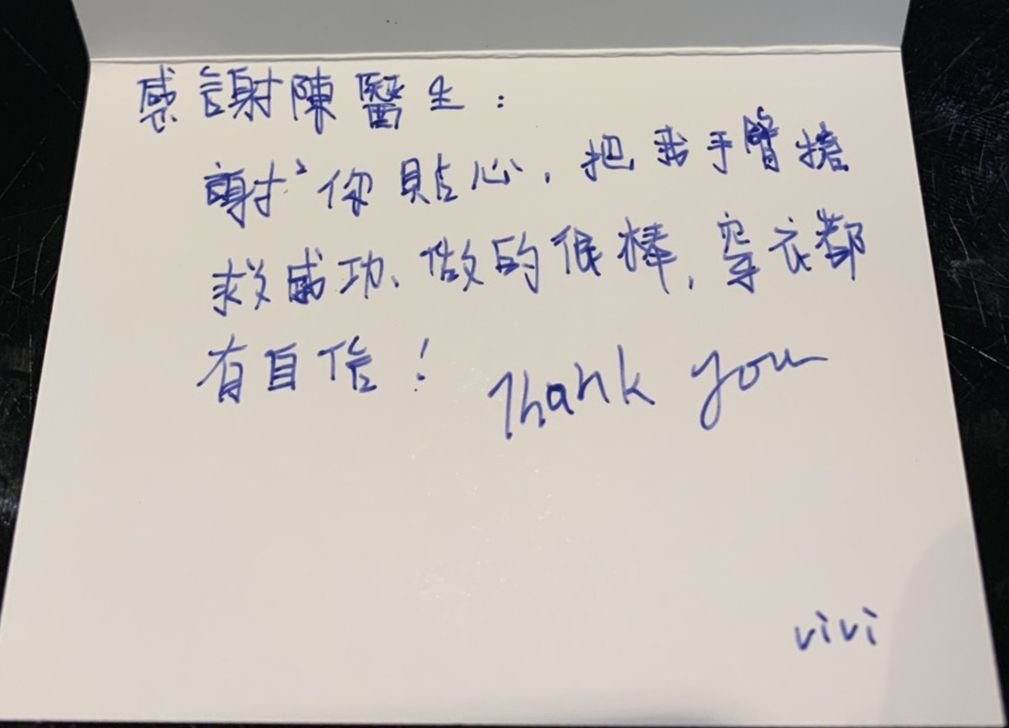 感謝陳醫生：
謝²你貼心，把我手臂搶
救成功、做的很棒，穿衣都
有自信！ Thank you
vivi